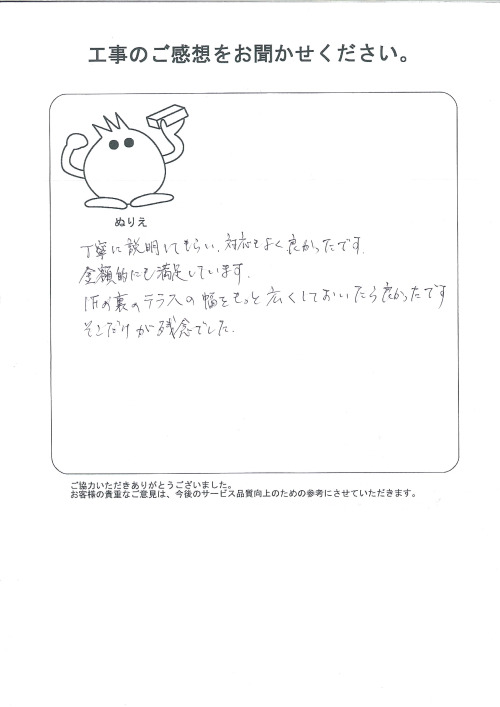 工事のご感想をお聞かせください。
ぬりえ
丁寧に説明してもらい、対応もよく良かったです。
金額的にも満足しています。
1Fの裏のテラスの幅をもっと広くしておいたら良かったです
そこだけが残念でした。
ご協力いただきありがとうございました。
お客様の貴重なご意見は、今後のサービス品質向上のための参考にさせていただきます。